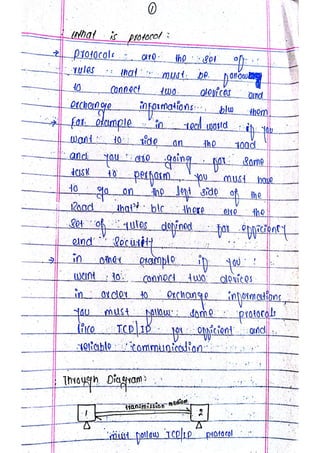 1
What is protocol :
→ protocols are the set of
rules that must be follow
to connect two devices and
exchange informations b/w them
→ for example in real world if you
want to ride on the road
and you are going for some
task to perform you must have
to go on the left side of the
Road that's b/c there are the
set of rules defined for efficiency
and security
→ in other example if you
want to connect two devices
in order to exchange informations,
you must follow some protocols
like TCP/IP for efficient and
reliable communication
Through Diagram:
transmission medium
1 2
must follow TCP/IP protocol